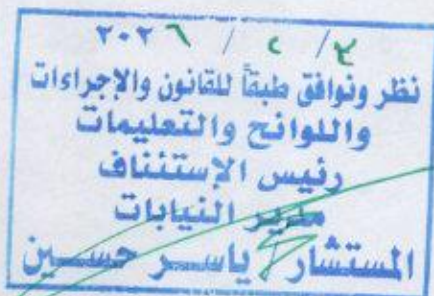 ٢٠٢٦ / ٢ / ٣
نظر ونوافق طبقاً للقانون والإجراءات
واللوائح والتعليمات
رئيس الإستئناف
مدير النيابات
المستشار / ياسر حسين